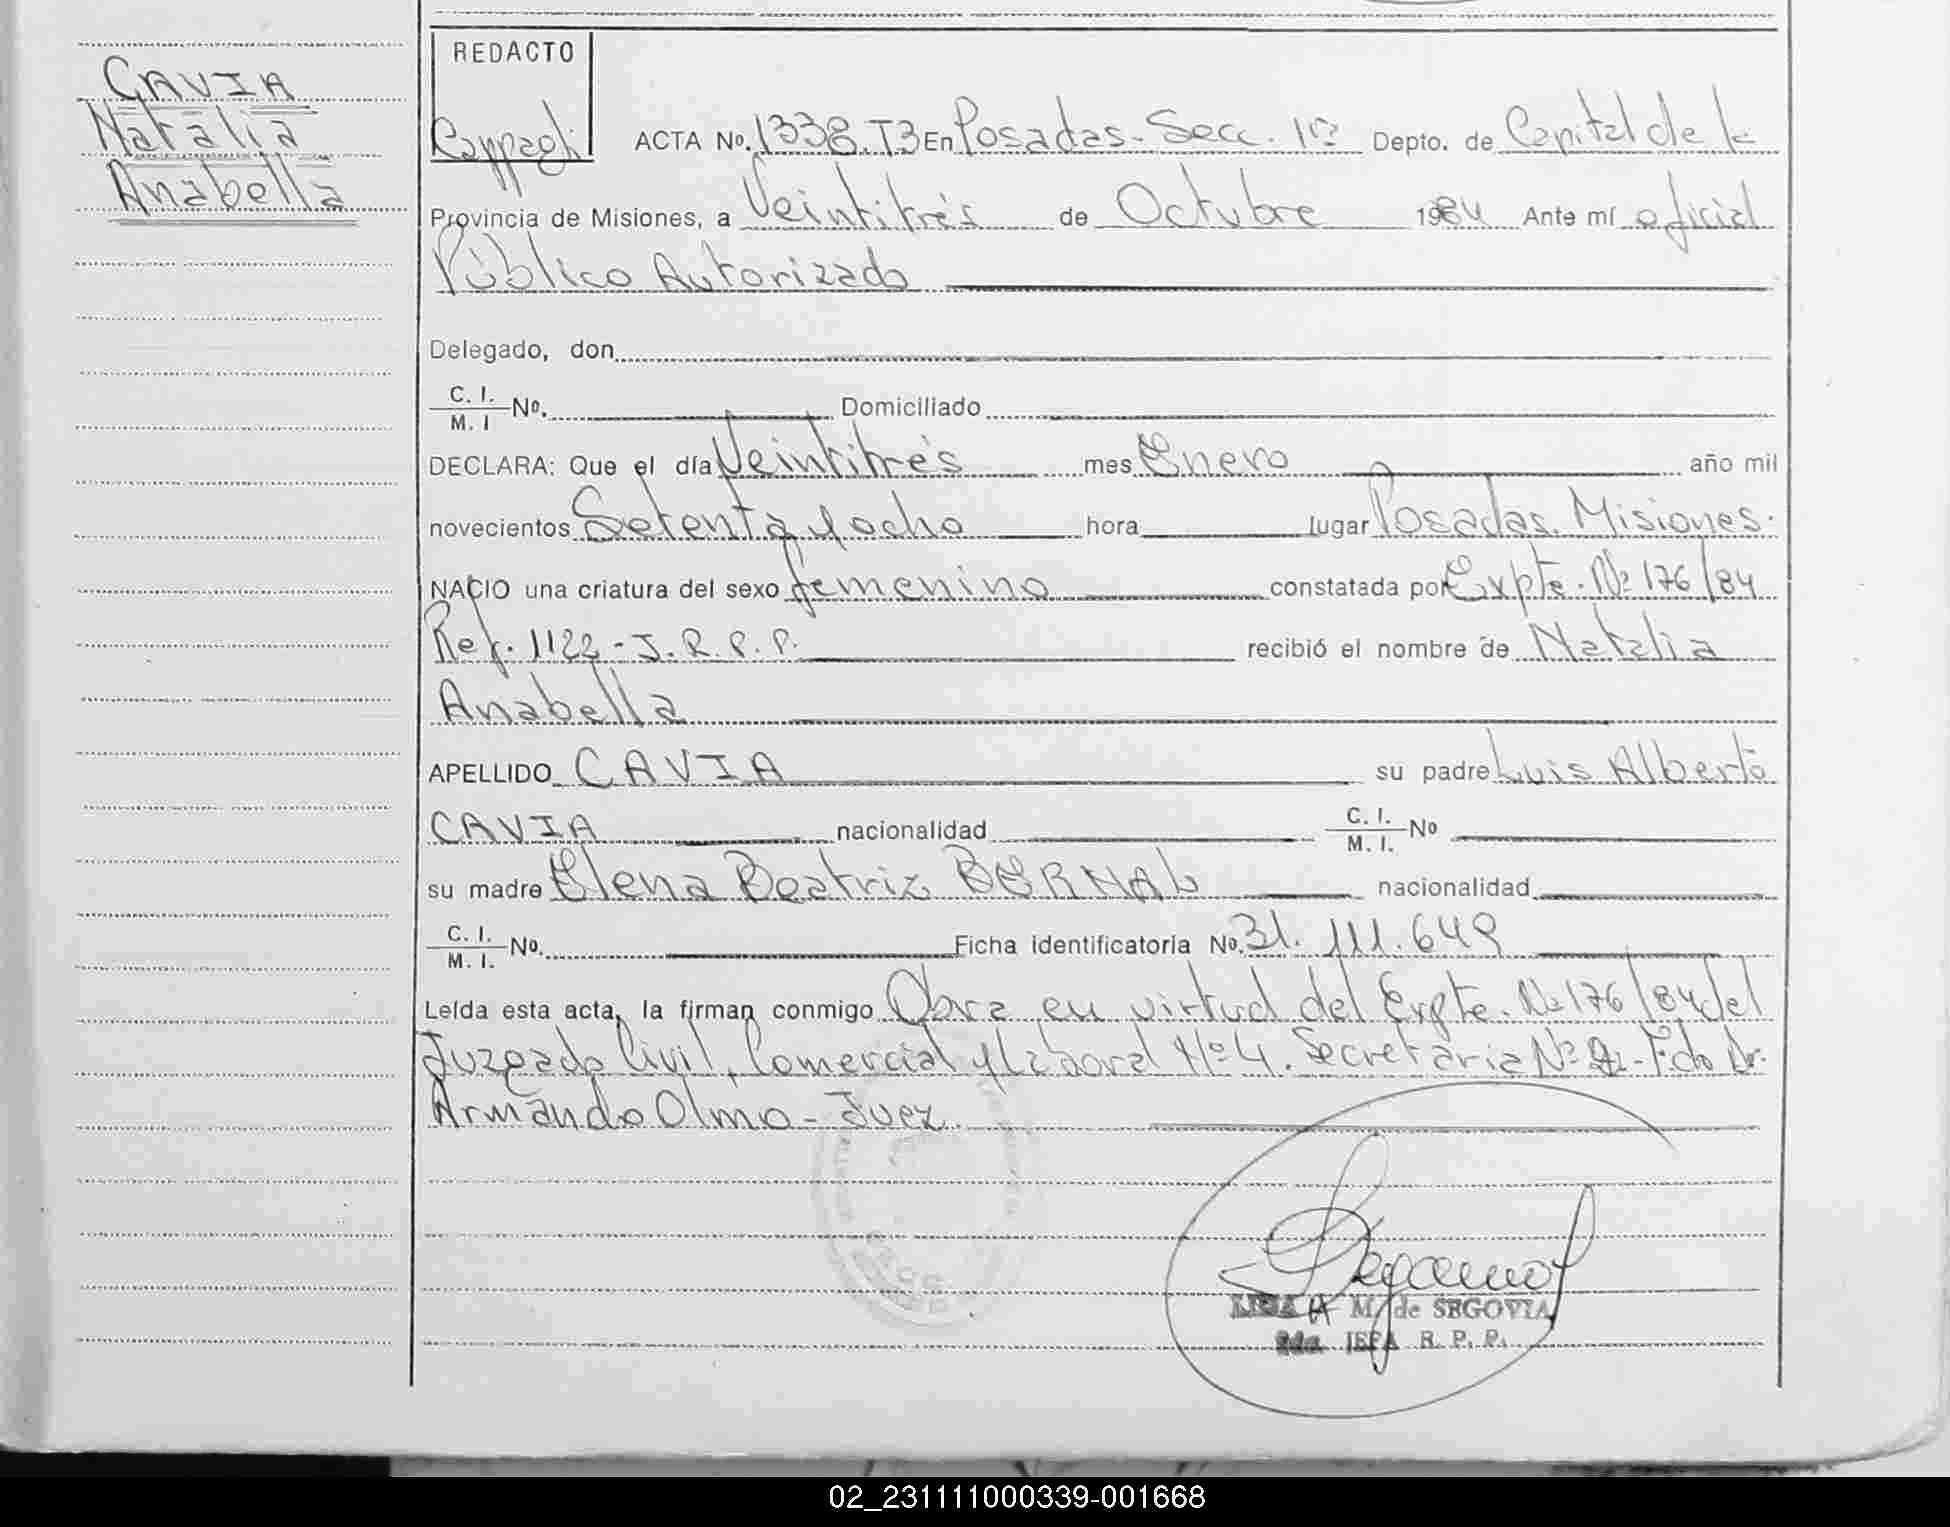 CAVIA
Natalia
Anabella
REDACTO
ACTA Nº. 1338. T3 En Posadas - Secc. 1ª Depto. de Capital de la
Provincia de Misiones, a Veintitrés de Octubre 1984 Ante mí oficial
Público Autorizado
Delegado, don
C. I.
M. I Nº. Domiciliado
DECLARA: Que el día Veintitrés mes Enero año mil
novecientos Setenta y ocho hora lugar Posadas. Misiones.
NACIO una criatura del sexo femenino constatada por Expte. Nº 176/84
Ref. 1122 - J.R.P.P. recibió el nombre de Natalia
Anabella
APELLIDO CAVIA su padre Luis Alberto
CAVIA nacionalidad C. I.
M. I. Nº
su madre Elena Beatriz BERNAL nacionalidad
C. I.
M. I. Nº. Ficha identificatoria Nº. 31.111.649
Leída esta acta, la firman conmigo Obra en virtud del Expte. Nº 176/84 del
Juzgado Civil, Comercial y Laboral Nº 4. Secretaria Nº - Fdo Dr.
Armando Olmo - Juez.
M. de SEGOVIA
2da. JEFA R. P. P.
02_231111000339-001668